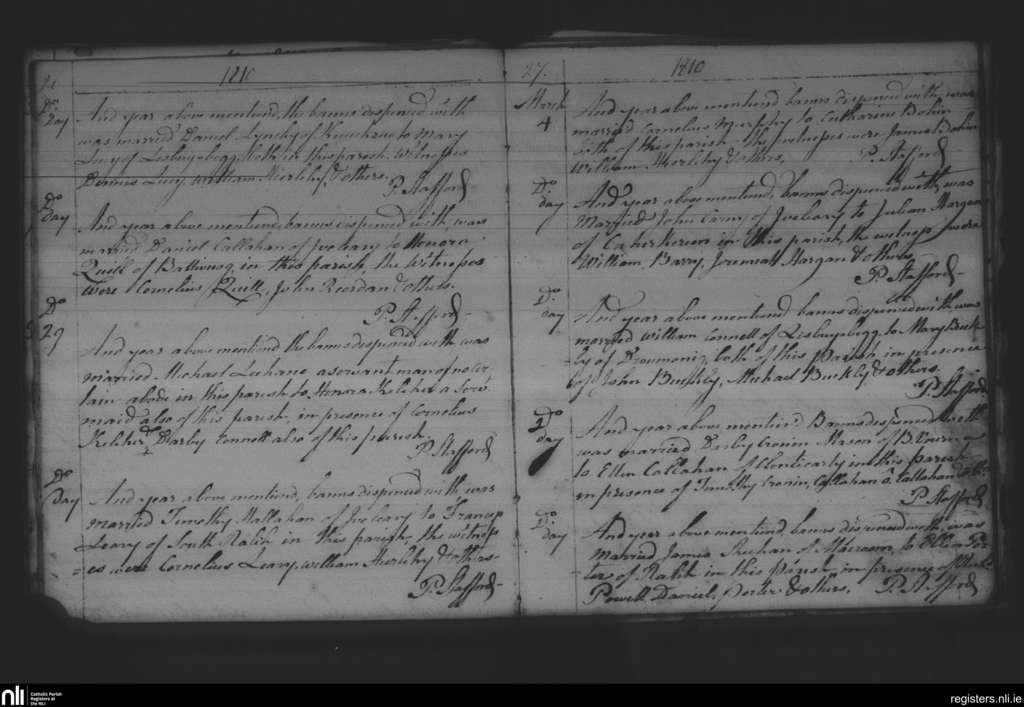 1810
Do
Day
And year above mentiond, the banns dispenced with
was married Daniel Lynchy of to Mary
Lucy of both in this parish. Witnesses
Dennis Lucy, William Murlihy, & others.
P. Stafford
Do
day
And year above mentiond, banns dispenced with, was
married Daniel Callahan of Iveleary to Honora
Quill of in this parish, the Witnesses
were Cornelius Quill, John Reordan & others.
P. Stafford
Do
29
And year above mentiond the banns dispenced with was
married Michael Leehane a servant man of no cer-
tain abode in this parish to Honora Keleher a serv
maid also of this parish, in presence of Cornelius
Keleher Darby Connell also of this parish.
P. Stafford
Do
Day
And year above mentiond, banns dispenced with, was
married Timothy Mallahan of Iveleary to Frances
Leary of South Ralih in this parish, the witness-
es were Cornelius Leary, William Murlihy & others
P. Stafford
27.
1810
March
4
And year above mentiond banns dispenced with, was
married Cornelius Murphy to Catharine Bohin
both of this parish the witnesses were James Bohin
William Murlihy & others, P. Stafford
Do
day
And year above mentiond, banns dispenced with, was
Married John Carny of Iveleary to Julian Horgan
of Caherkereen in this parish, the witness's were
William, Barry, Jeremiah Horgan & others
P. Stafford
Do
day
And year above mentiond banns dispenced with was
married William Connell of to Mary Buck-
ly of both of this Parish in presence
of John Buckley, Michael Buckly & others.
P. Stafford
Do
day
And year above mention'd Banns dispenced with
was married Darby Cronin Mason of
to Ellen Callahan of in this parish
in presence of Timothy Cronin, Callahan o Callahan & others
P. Stafford
Do
day
And year above mentiond, banns dispenced with, was
Married James Sheehan of Macroom, to Ellen Por-
ter of Ralih in this Parish in presence of
Powell Daniel, Porter & others, P. Stafford
nli
Catholic Parish
Registers at
the NLI
registers.nli.ie